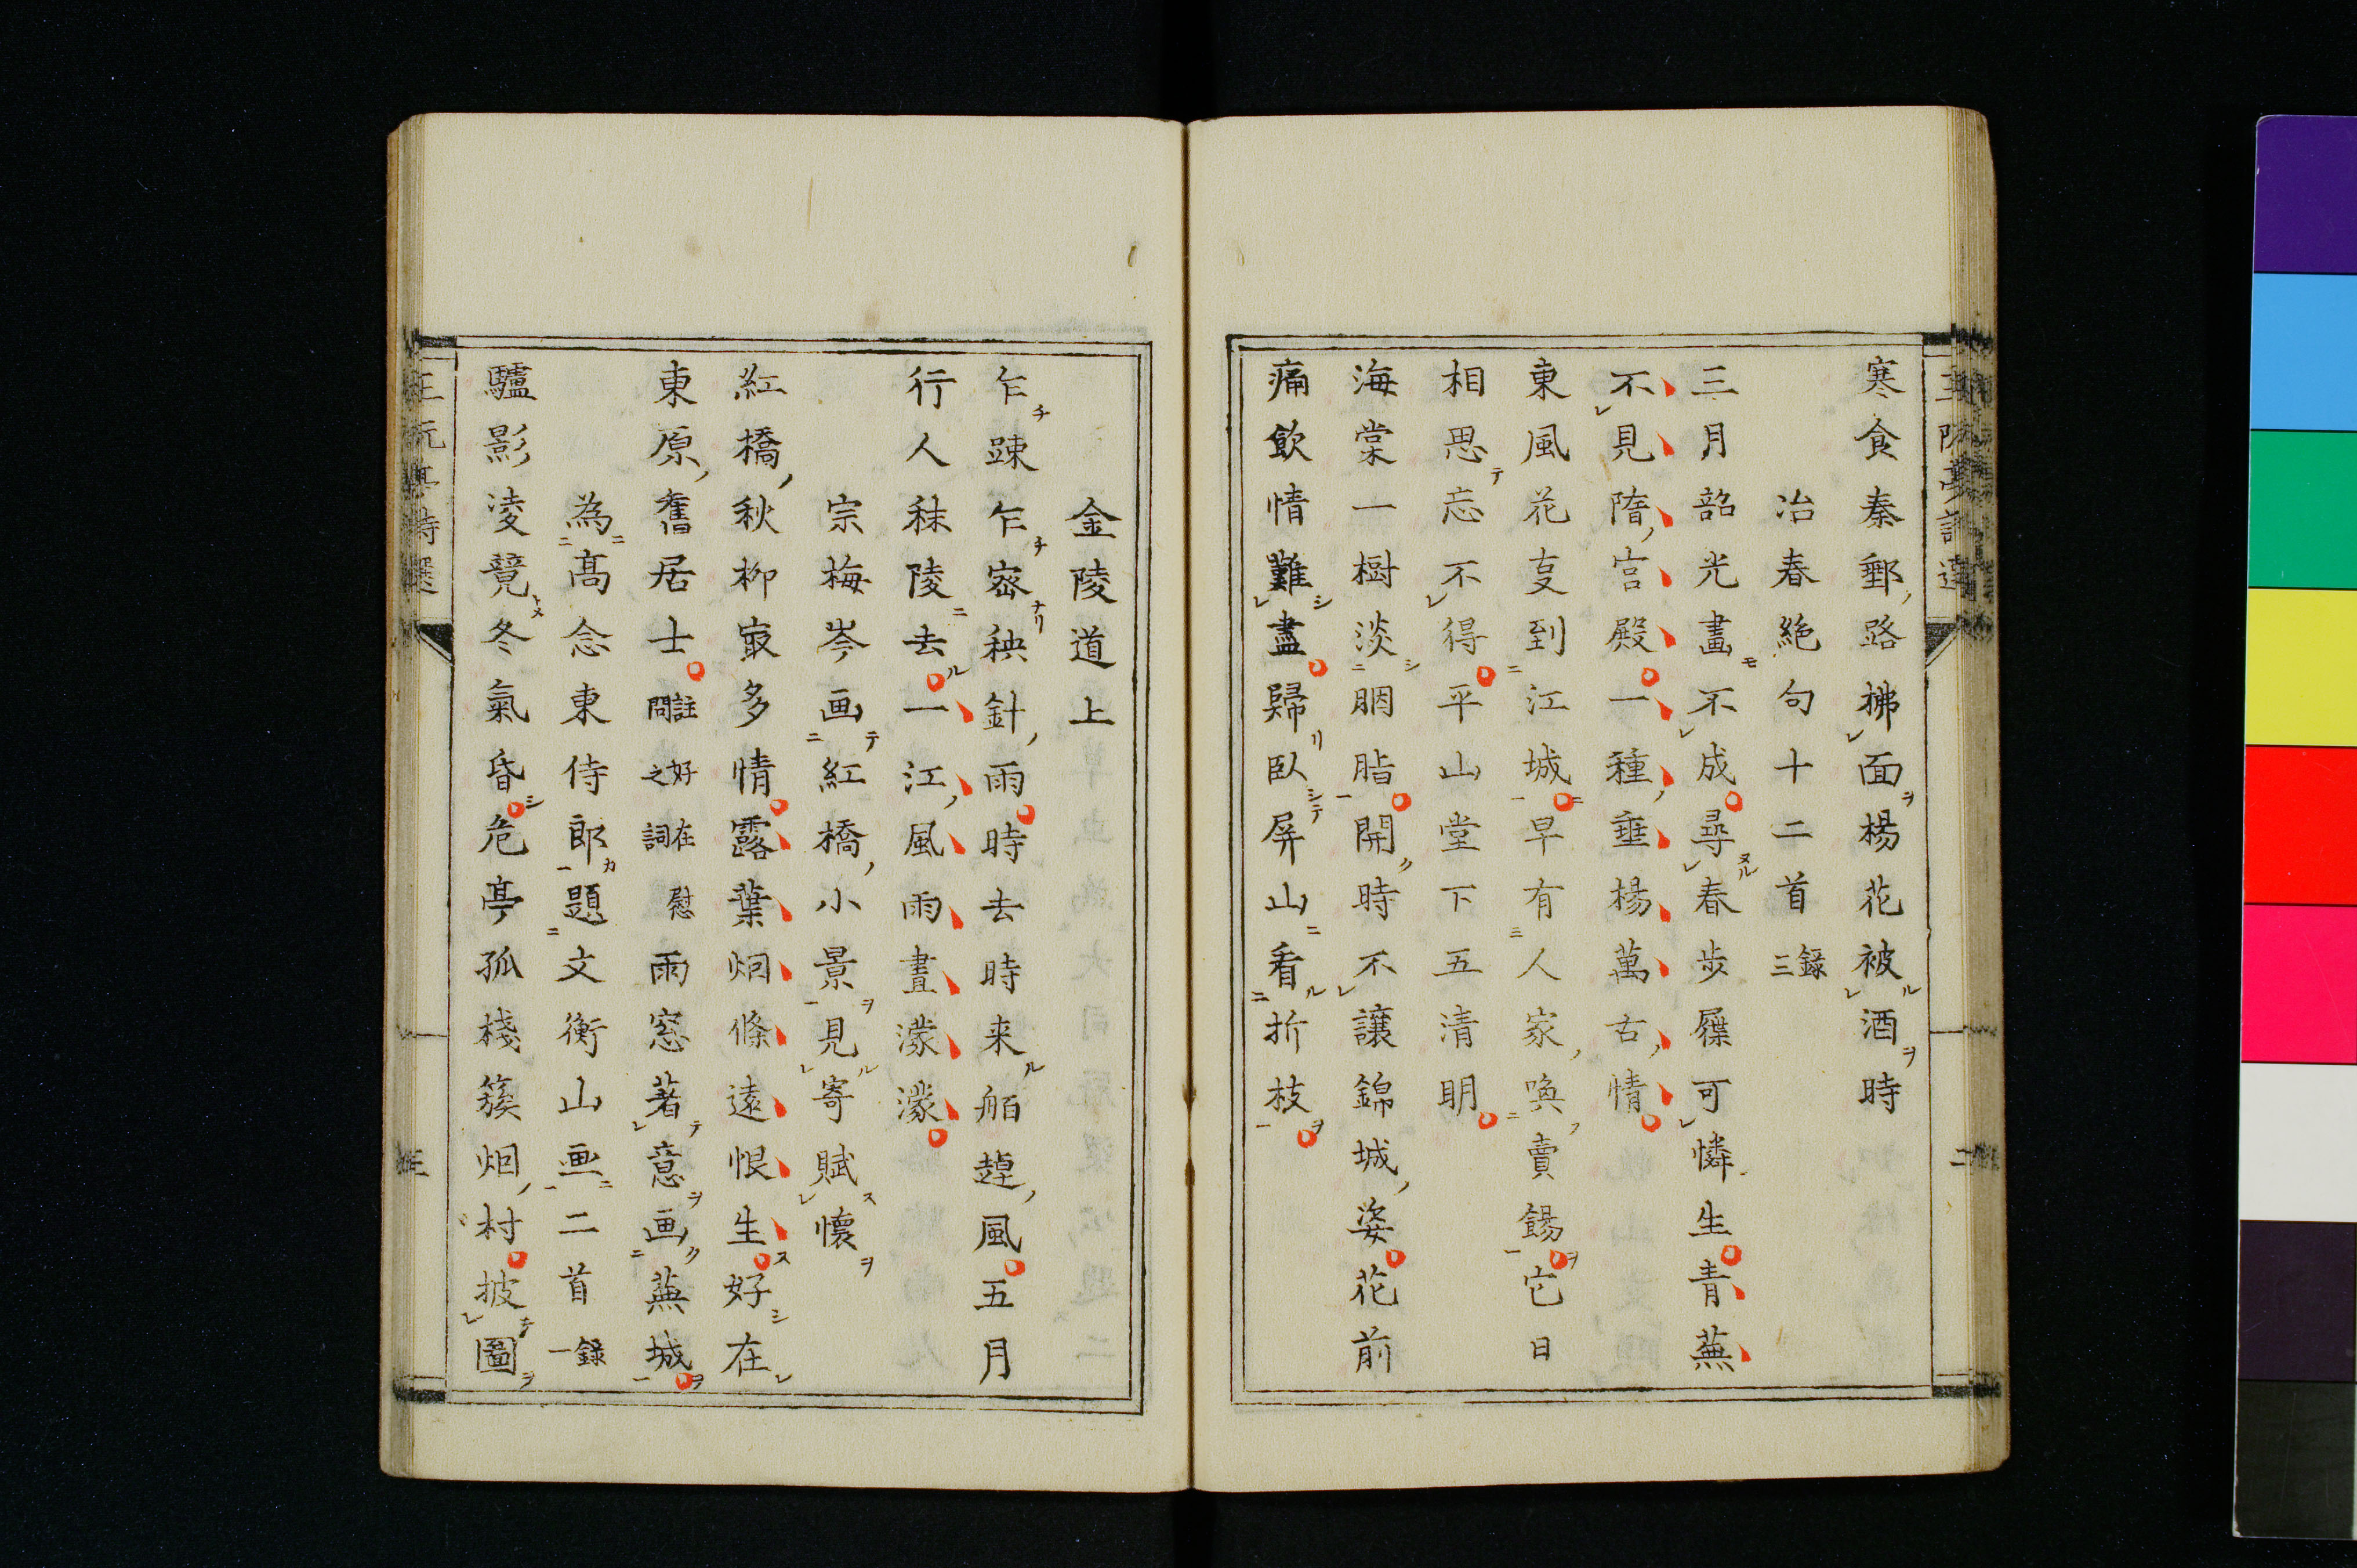 寒食秦郵路拂面楊花被酒時
冶春絶句十二首 錄三
三月韶光畫不成尋春步屧可憐生青蕪
不見隋宮殿一種垂楊萬古情
東風花叓到江城早有人家喚賣餳它日
相思忘不得平山堂下五清明
海棠一樹淡胭脂開時不讓錦城姿花前
痛飲情難盡歸臥屏山看折枝
金陵道上
乍踈乍宻秧針雨時去時来舶趠風五月
行人秣陵去一江風雨晝濛濛
宗梅岑画紅橋小景見寄賦懷
紅橋秋柳㝡多情露葉烟條遠恨生好在
東原舊居士 註好在慰問之詞 雨窓著意画蕪城
為髙念東侍郎題文衡山画二首 錄一
驢影凌兢冬氣昏危亭孤棧簇烟村披圖
二
三